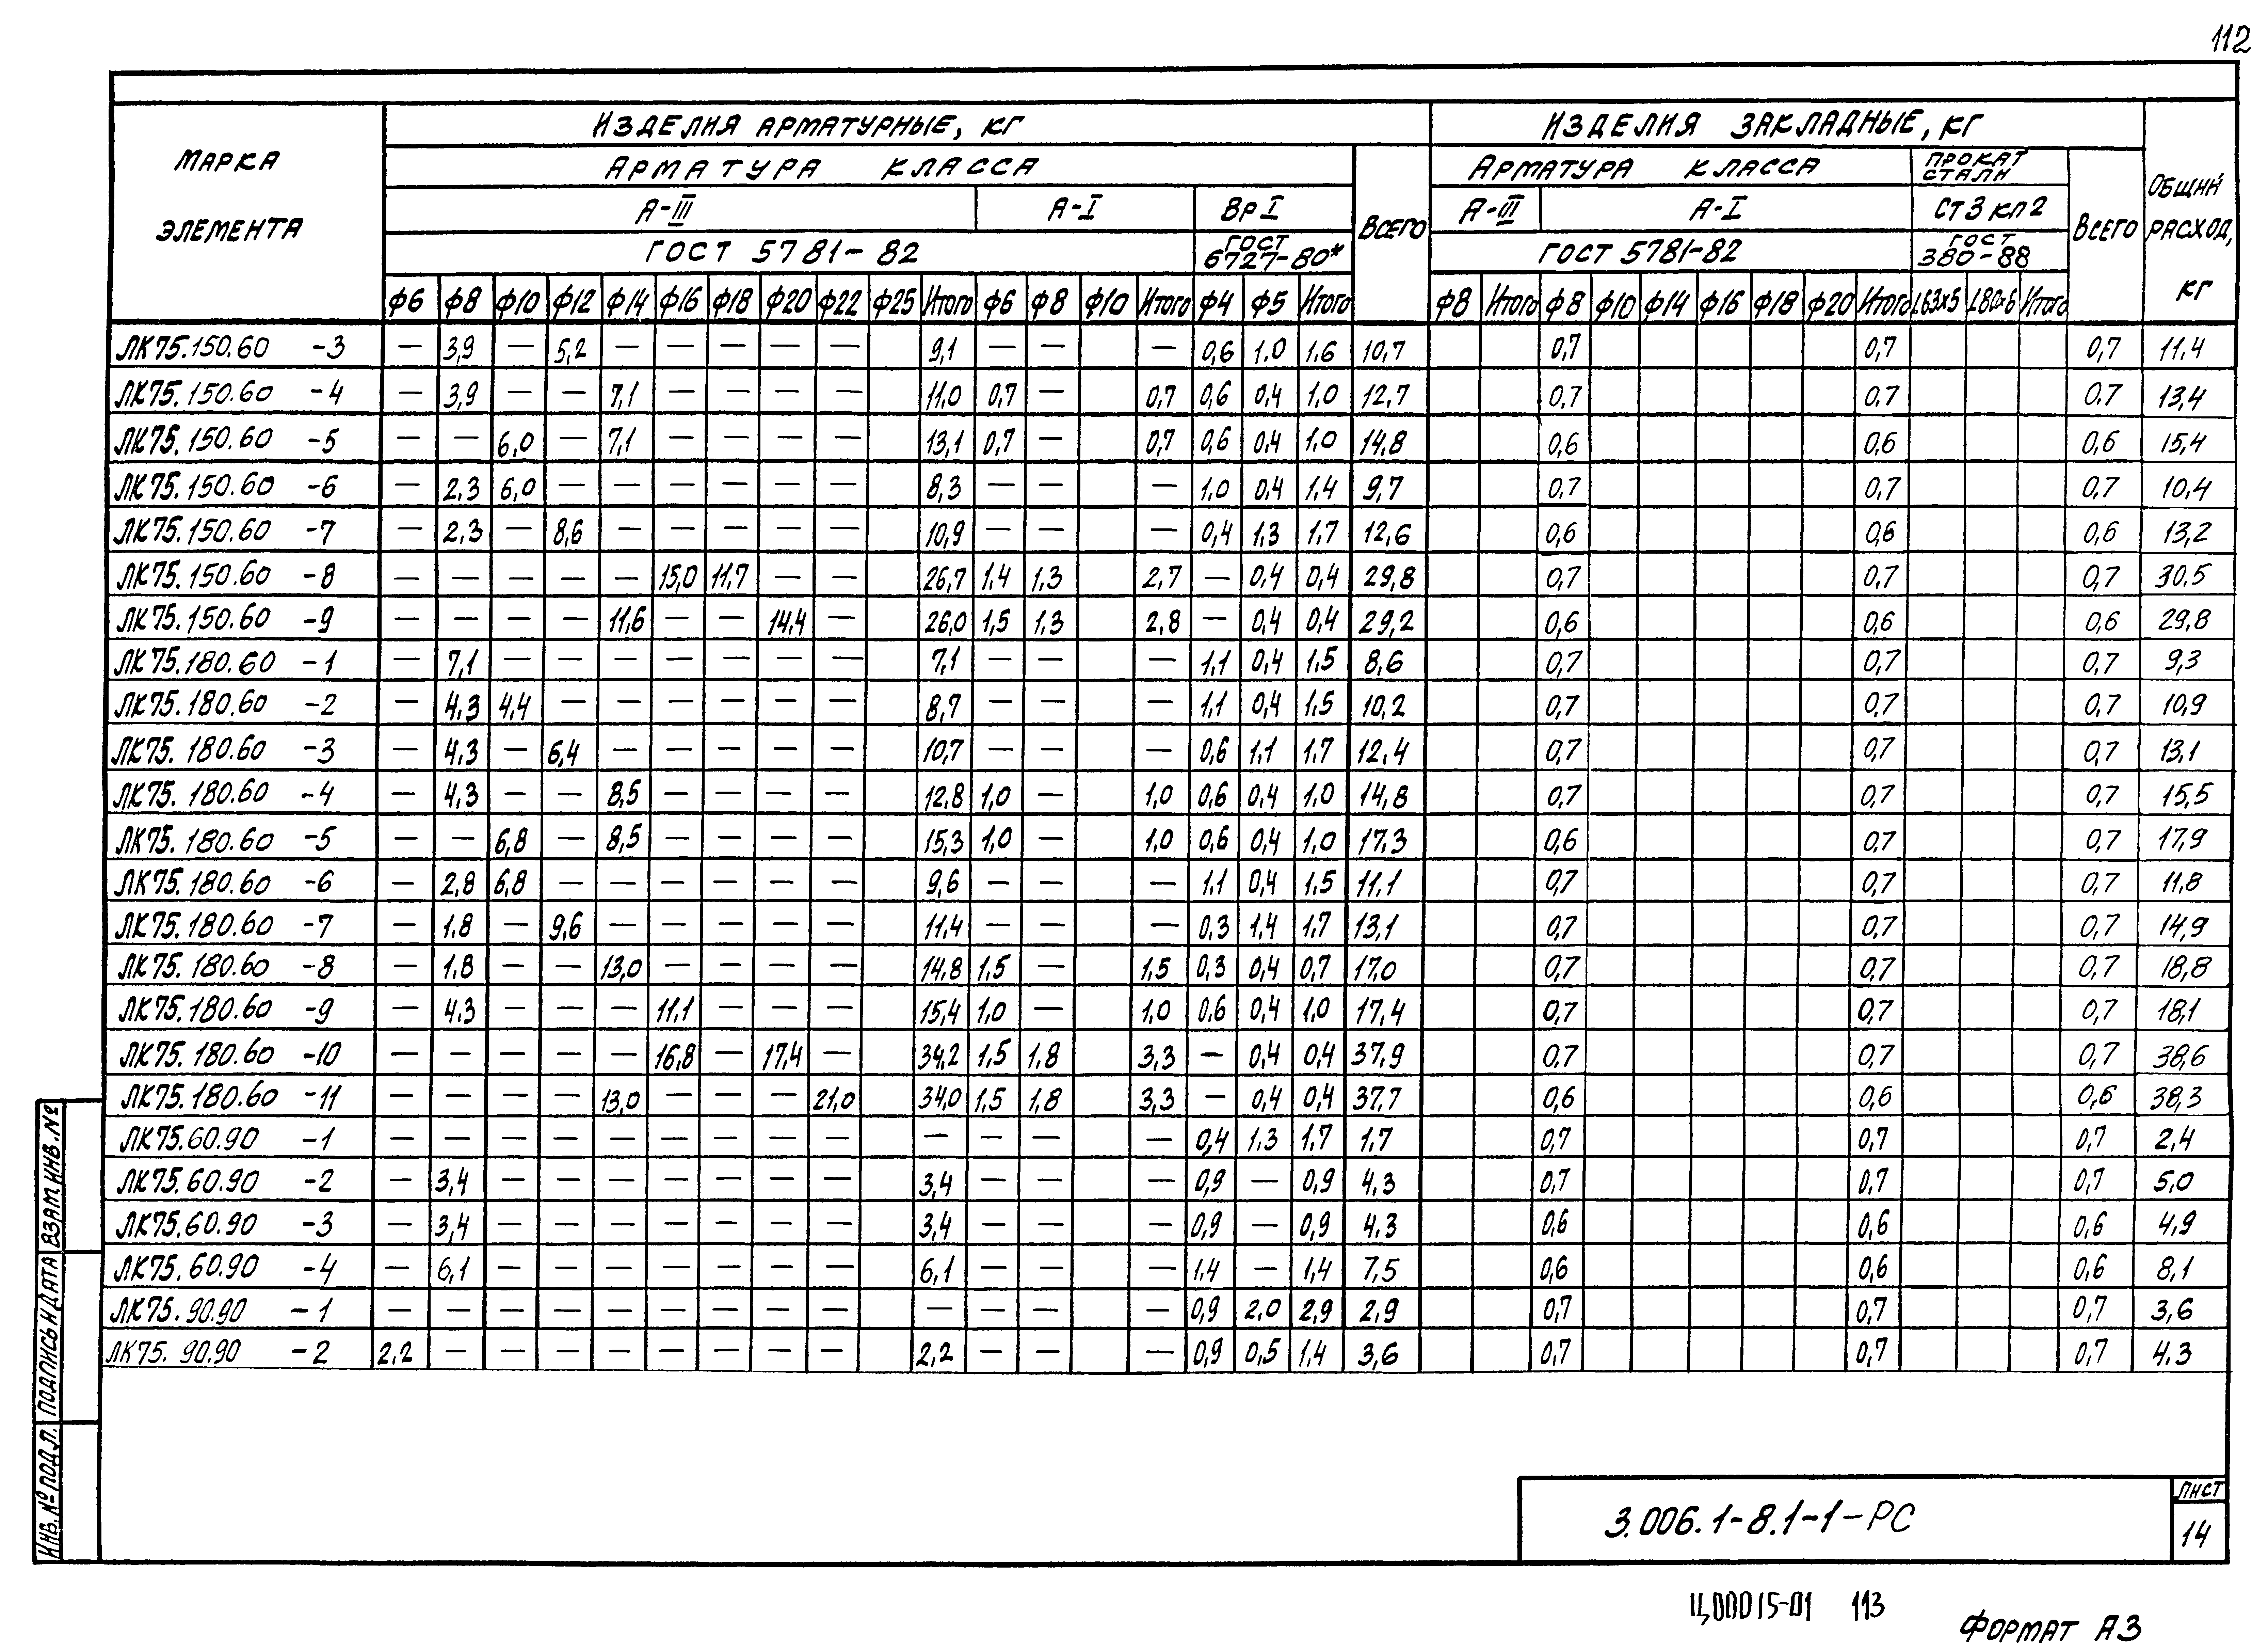 112
ИЗДЕЛИЯ АРМАТУРНЫЕ, КГ ИЗДЕЛИЯ ЗАКЛАДНЫЕ, КГ
МАРКА ЭЛЕМЕНТА АРМАТУРА КЛАССА ВСЕГО АРМАТУРА КЛАССА ПРОКАТ СТАЛИ ВСЕГО ОБЩИЙ РАСХОД, КГ
А-III А-I ВрI А-III А-I СТ3 КП2
ГОСТ 5781-82 ГОСТ 6727-80* ГОСТ 5781-82 ГОСТ 380-88
Ф6 Ф8 Ф10 Ф12 Ф14 Ф16 Ф18 Ф20 Ф22 Ф25 Итого Ф6 Ф8 Ф10 Итого Ф4 Ф5 Итого Ф8 Итого Ф8 Ф10 Ф14 Ф16 Ф18 Ф20 Итого L63x5 L80x6 Итого
ЛК75.150.60 -3 — 3,9 — 5,2 — — — — — 9,1 — — — 0,6 1.0 1.6 10,7 0,7 0,7 0,7 11,4
ЛК75.150.60 -4 — 3,9 — — 7,1 — — — — 11,0 0,7 — 0,7 0,6 0,4 1,0 12,7 0,7 0,7 0.7 13,4
ЛК75.150.60 -5 — — 6,0 — 7,1 — — — — 13,1 0,7 — 0,7 0,6 0,4 1.0 14,8 0,6 0,6 0,6 15,4
ЛК75.150.60 -6 — 2,3 6,0 — — — — — — 8,3 — — — 1.0 0,4 1.4 9,7 0,7 0,7 0,7 10,4
ЛК75.150.60 -7 — 2.3 — 8,6 — — — — — 10,9 — — — 0,4 1.3 1.7 12,6 0,6 0,6 0,6 13,2
ЛК75.150.60 -8 — — — — — 15,0 11,7 — — 26,7 1,4 1,3 2,7 — 0,4 0,4 29,8 0,7 0,7 0,7 30,5
ЛК75.150.60 -9 — — — — 11,6 — — 14,4 — 26,0 1,5 1.3 2,8 — 0,4 0,4 29,2 0,6 0,6 0,6 29,8
ЛК75.180.60 -1 — 7,1 — — — — — — — 7,1 — — — 1.1 0,4 1.5 8,6 0,7 0,7 0,7 9,3
ЛК75.180.60 -2 — 4.3 4,4 — — — — — — 8,7 — — — 1.1 0,4 1.5 10,2 0,7 0,7 0,7 10,9
ЛК75.180.60 -3 — 4.3 — 6,4 — — — — — 10,7 — — — 0,6 1.1 1.7 12,4 0,7 0,7 0,7 13,1
ЛК75.180.60 -4 — 4,3 — — 8,5 — — — — 12,8 1,0 — 1,0 0,6 0,4 1,0 14,8 0,7 0,7 0,7 15,5
ЛК75.180.60 -5 — — 6,8 — 8,5 — — — — 15,3 1,0 — 1,0 0,6 0,4 1,0 17,3 0,6 0,7 0,7 17,9
ЛК75.180.60 -6 — 2,8 6,8 — — — — — — 9,6 — — — 1.1 0,4 1.5 11,1 0,7 0,7 0,7 11,8
ЛК75.180.60 -7 — 1.8 — 9,6 — — — — — 11,4 — — — 0,3 1.4 1.7 13,1 0,7 0,7 0,7 14,9
ЛК75.180.60 -8 — 1,8 — — 13,0 — — — — 14,8 1,5 — 1.5 0,3 0,4 0,7 17,0 0,7 0,7 0,7 18,8
ЛК75.180.60 -9 — 4.3 — — — 11,1 — — — 15,4 1,0 — 1,0 0,6 0,4 1.0 17,4 0,7 0,7 0,7 18,1
ЛК75.180.60 -10 — — — — — 16,8 — 17,4 — 34,2 1,5 1,8 3,3 — 0,4 0,4 37,9 0,7 0,7 0,7 38,6
ЛК75.180.60 -11 — — — — 13,0 — — — 21,0 34,0 1,5 1,8 3,3 — 0,4 0,4 37.7 0,6 0,6 0,6 38,3
ЛК75.60.90 -1 — — — — — — — — — — — — — 0,4 1.3 1,7 1.7 0,7 0,7 0,7 2,4
ЛК75.60.90 -2 — 3,4 — — — — — — — 3,4 — — — 0,9 — 0,9 4.3 0,7 0,7 0,7 5,0
ЛК75.60.90 -3 — 3,4 — — — — — — — 3,4 — — — 0,9 — 0,9 4.3 0,6 0,6 0,6 4,9
ЛК75.60.90 -4 — 6,1 — — — — — — — 6,1 — — — 1.4 — 1,4 7,5 0,6 0,6 0,6 8,1
ЛК75.90.90 -1 — — — — — — — — — — — — — 0,9 2.0 2,9 2,9 0,7 0,7 0,7 3,6
ЛК75.90.90 -2 2,2 — — — — — — — — 2,2 — — — 0,9 0,5 1,4 3,6 0,7 0,7 0,7 4.3
ИНВ.№ ПОДЛ. ПОДПИСЬ И ДАТА ВЗАМ.ИНВ.№
3.006.1-8.1-1-РС
ЛИСТ
14
Ц00015-01 113
ФОРМАТ А3